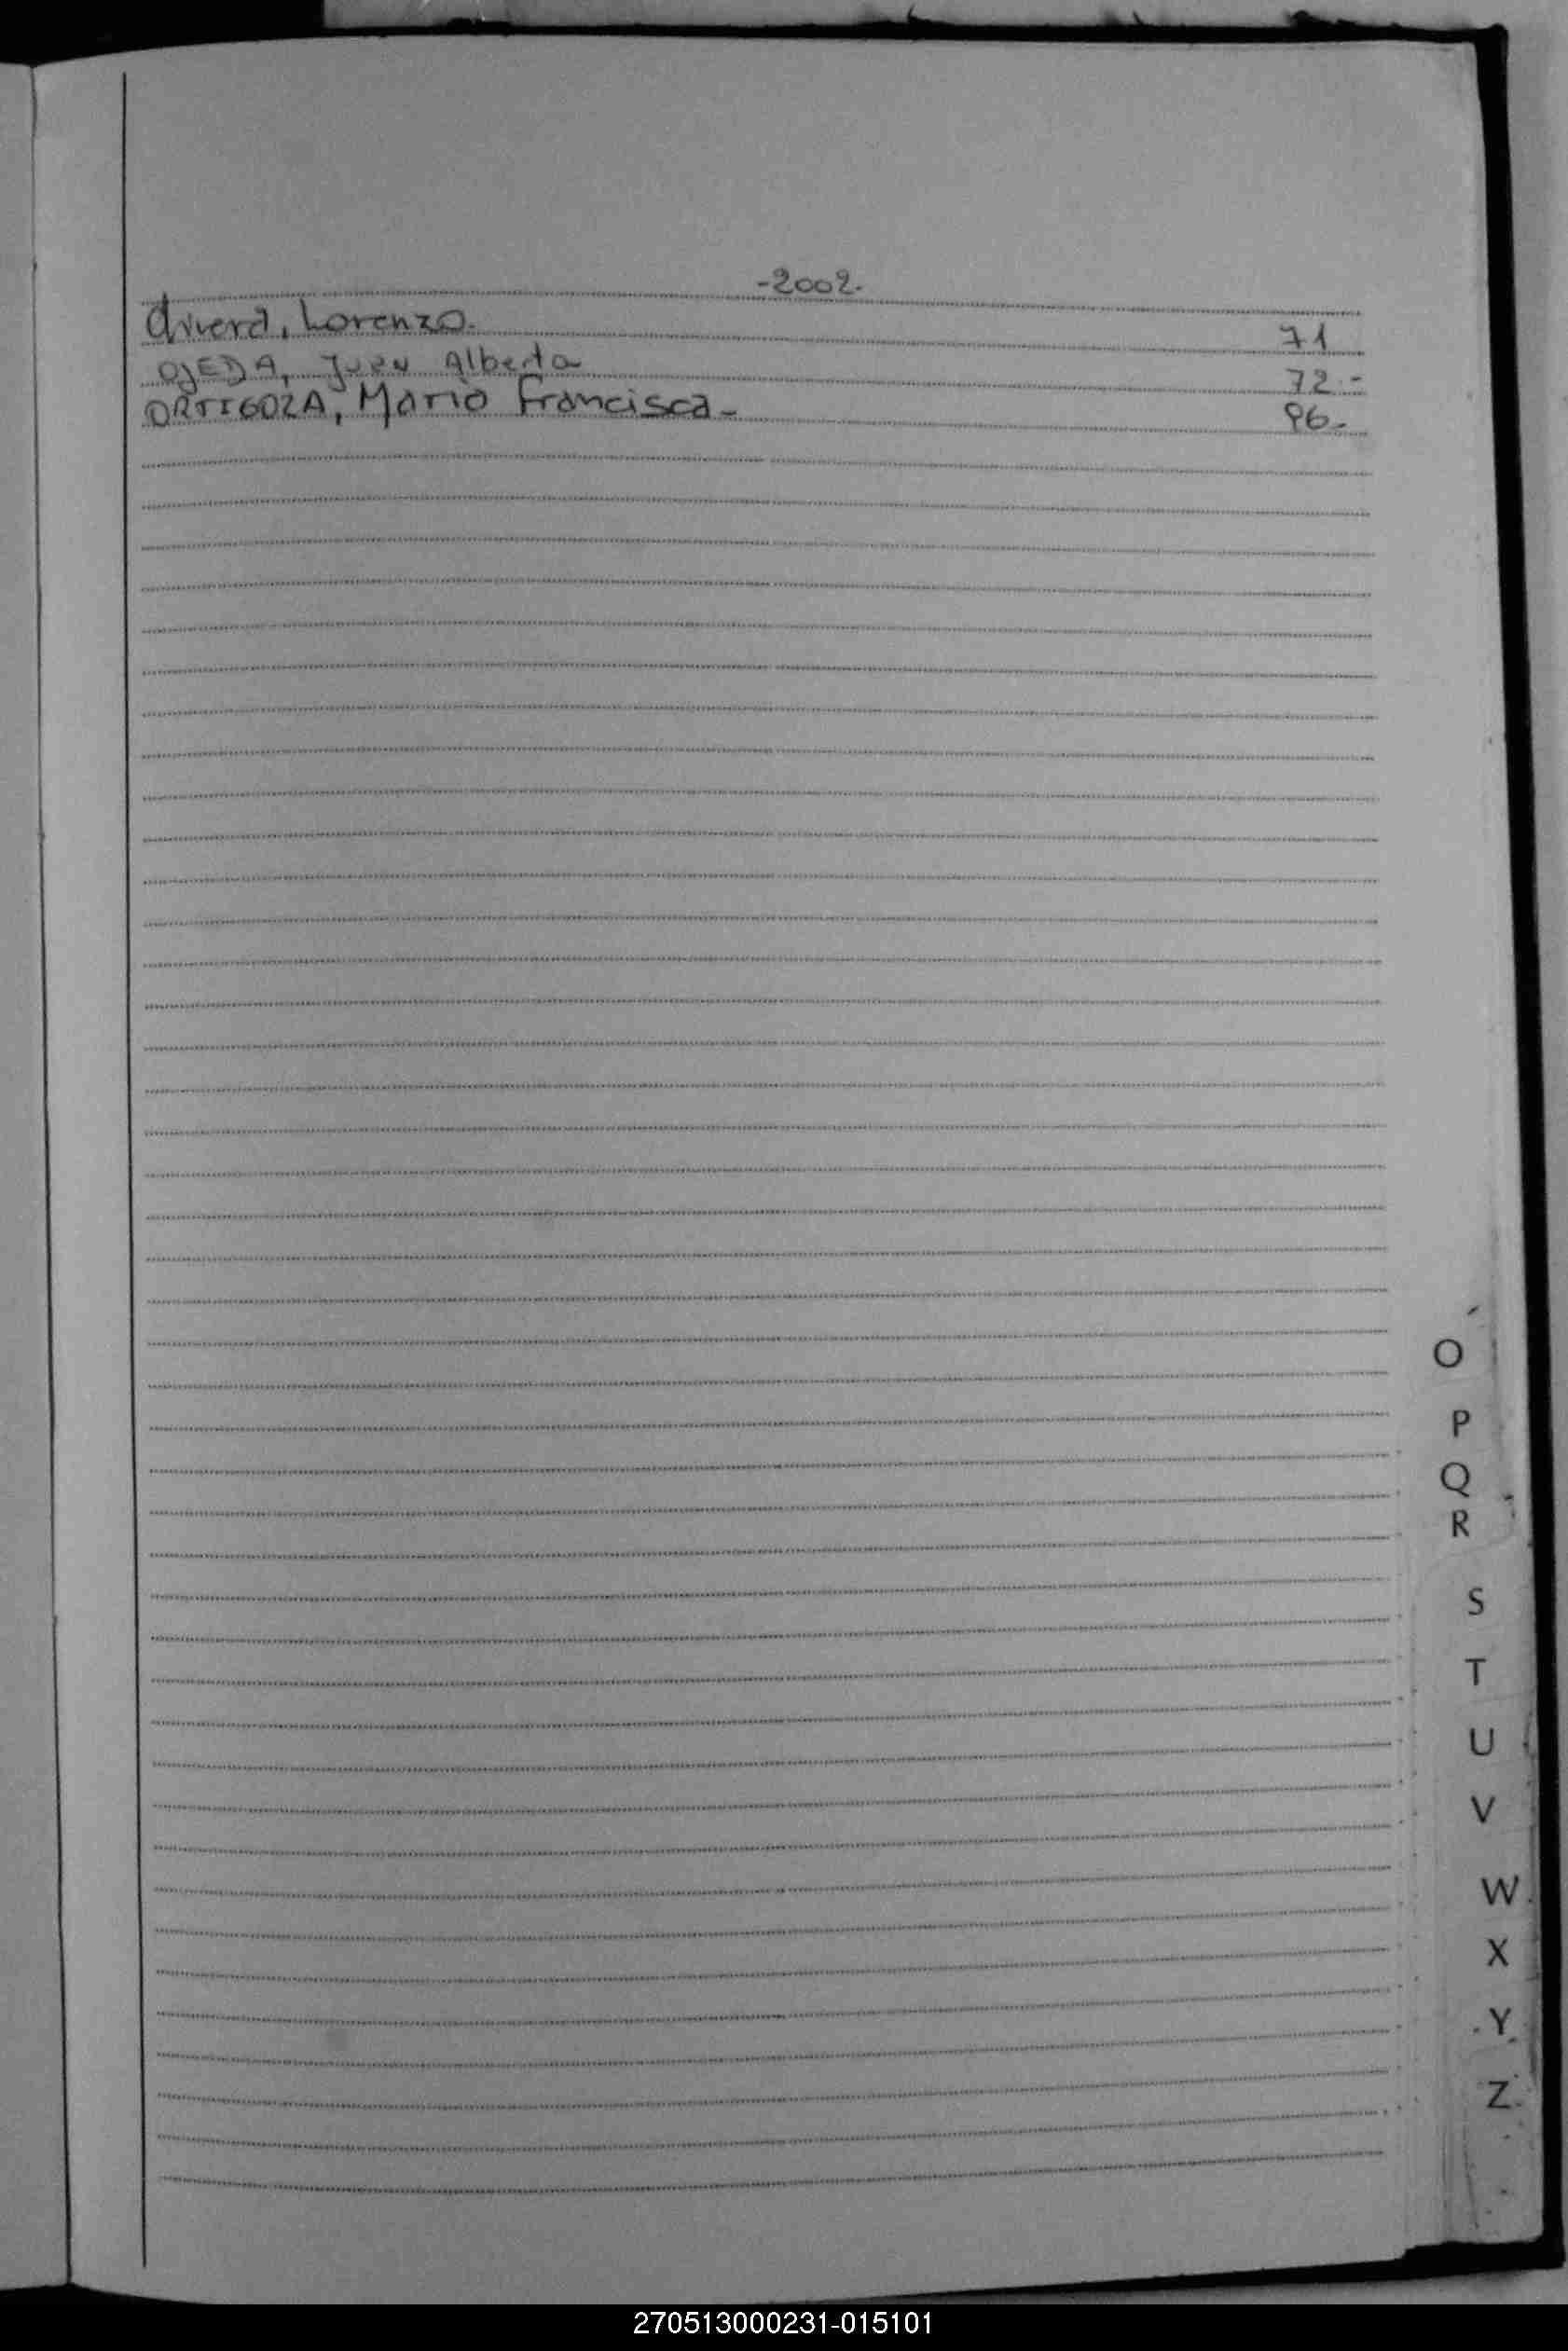 -2002-
Olivera, Lorenzo. 71
OJEDA, Juan Alberto 72.-
ORTIGOZA, Mario Francisca- 96-
O
P
Q
R
S
T
U
V
W
X
Y
Z
270513000231-015101